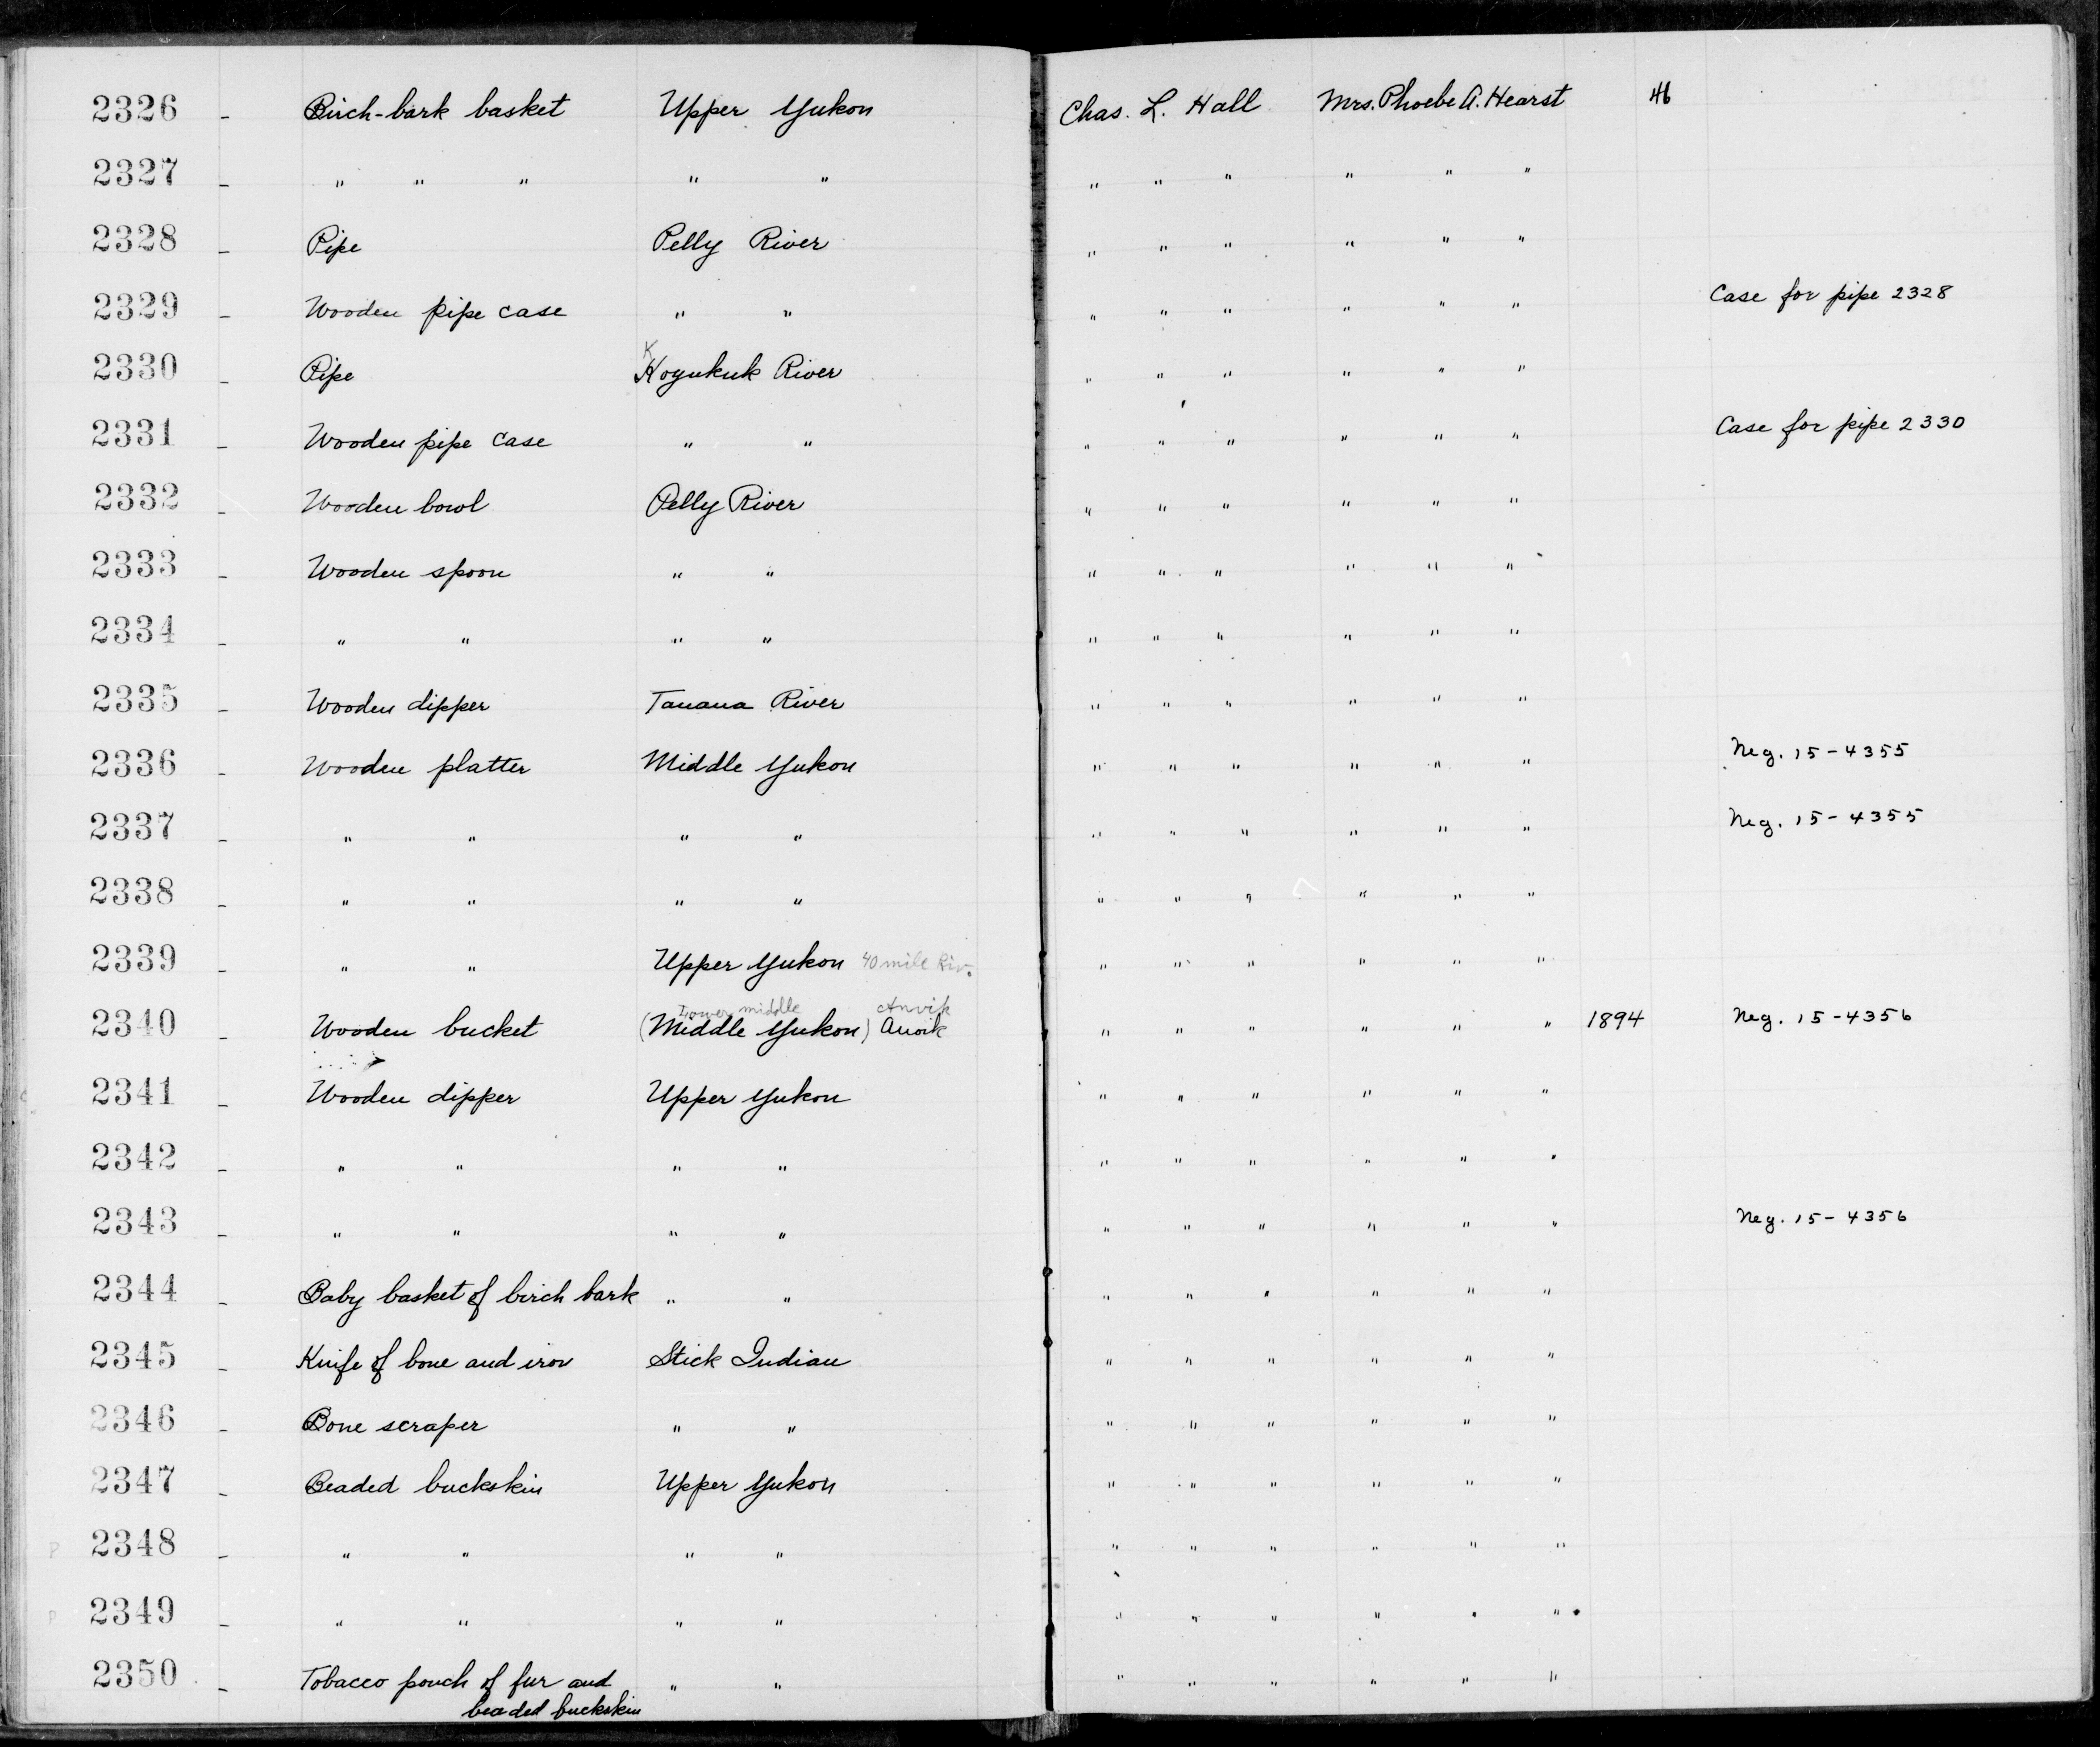 2326 - Birch-bark basket Upper Yukon Chas. L. Hall Mrs. Phoebe A. Hearst 46
2327 - " " " " " " " " " " "
2328 - Pipe Pelly River " " " " " "
2329 - Wooden pipe case " " " " " " " " Case for pipe 2328
K
2330 - Pipe Koyukuk River " " " " " "
2331 - Wooden pipe case " " " " " " " " Case for pipe 2330
2332 - Wooden bowl Pelly River " " " " " "
2333 - Wooden spoon " " " " " " " "
2334 - " " " " " " " " " "
2335 - Wooden dipper Tanana River " " " " " "
2336 - Wooden platter Middle Yukon " " " " " " Neg. 15-4355
2337 - " " " " " " " " " " Neg. 15-4355
2338 - " " " " " " " " " "
2339 - " " Upper Yukon 40 mile Riv. " " " " " "
Lower middle Anvik
2340 - Wooden bucket (Middle Yukon) Anvik " " " " " " 1894 Neg. 15-4356
2341 - Wooden dipper Upper Yukon " " " " " "
2342 - " " " " " " " " " "
2343 - " " " " " " " " " " Neg. 15-4356
2344 - Baby basket of birch bark " " " " " " " "
2345 - Knife of bone and iron Stick Indian " " " " " "
2346 - Bone scraper " " " " " " " "
2347 - Beaded buckskin Upper Yukon " " " " " "
P 2348 - " " " " " " " " " "
P 2349 - " " " " " " " " " "
2350 - Tobacco pouch of fur and " " " " " " " "
beaded buckskin